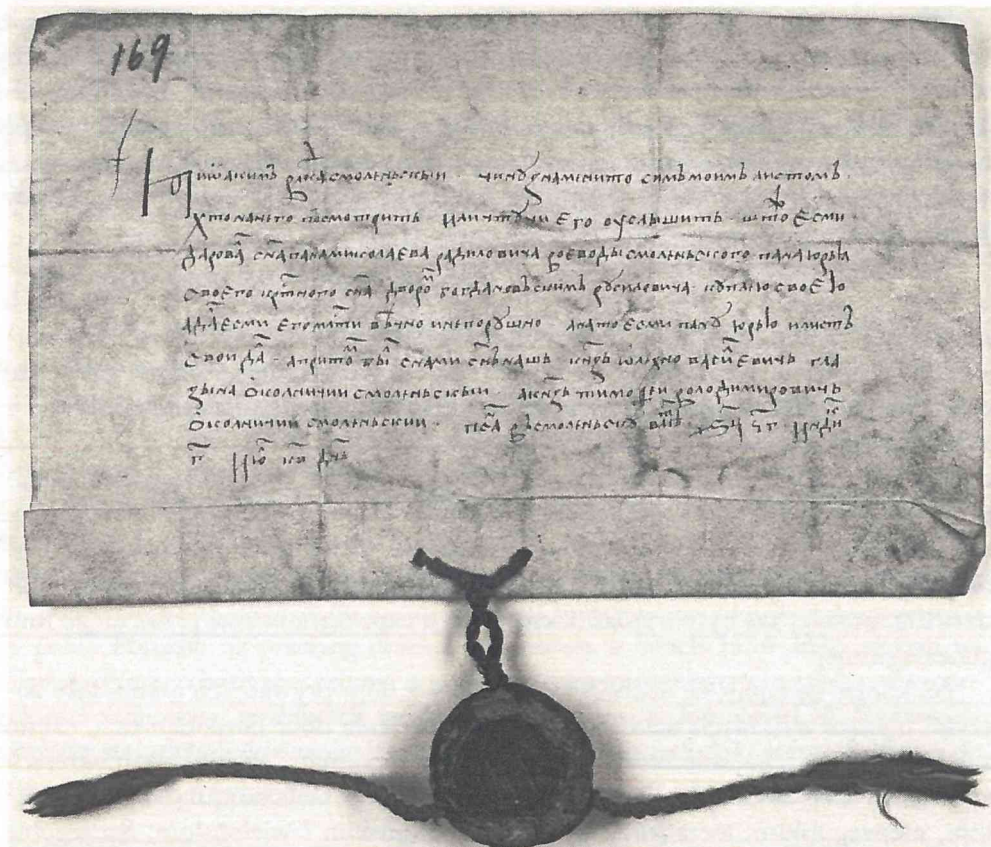 169
Иѡакимъ влдка смоленьскыи чиню знаменито симъ моимъ листомъ
хто на него посмотрить или чтучи его оуслышить што есми
даровал сна пана миколаева радиловича воеводы смоленьского пана юрья
своего кртного сна дворомъ богдановьскимъ русиловича куплею своею
а дал есми ему мѣти вѣчно инепорушно а на то есми пану юрью и листъ
свои дал а при том был с нами снъ нашь кнзь
околничии смоленьскыи а кнзь тимофеи володимировичь
околничии смоленьскии псан въ смоленьску в лѣт индик
г июл ка днь